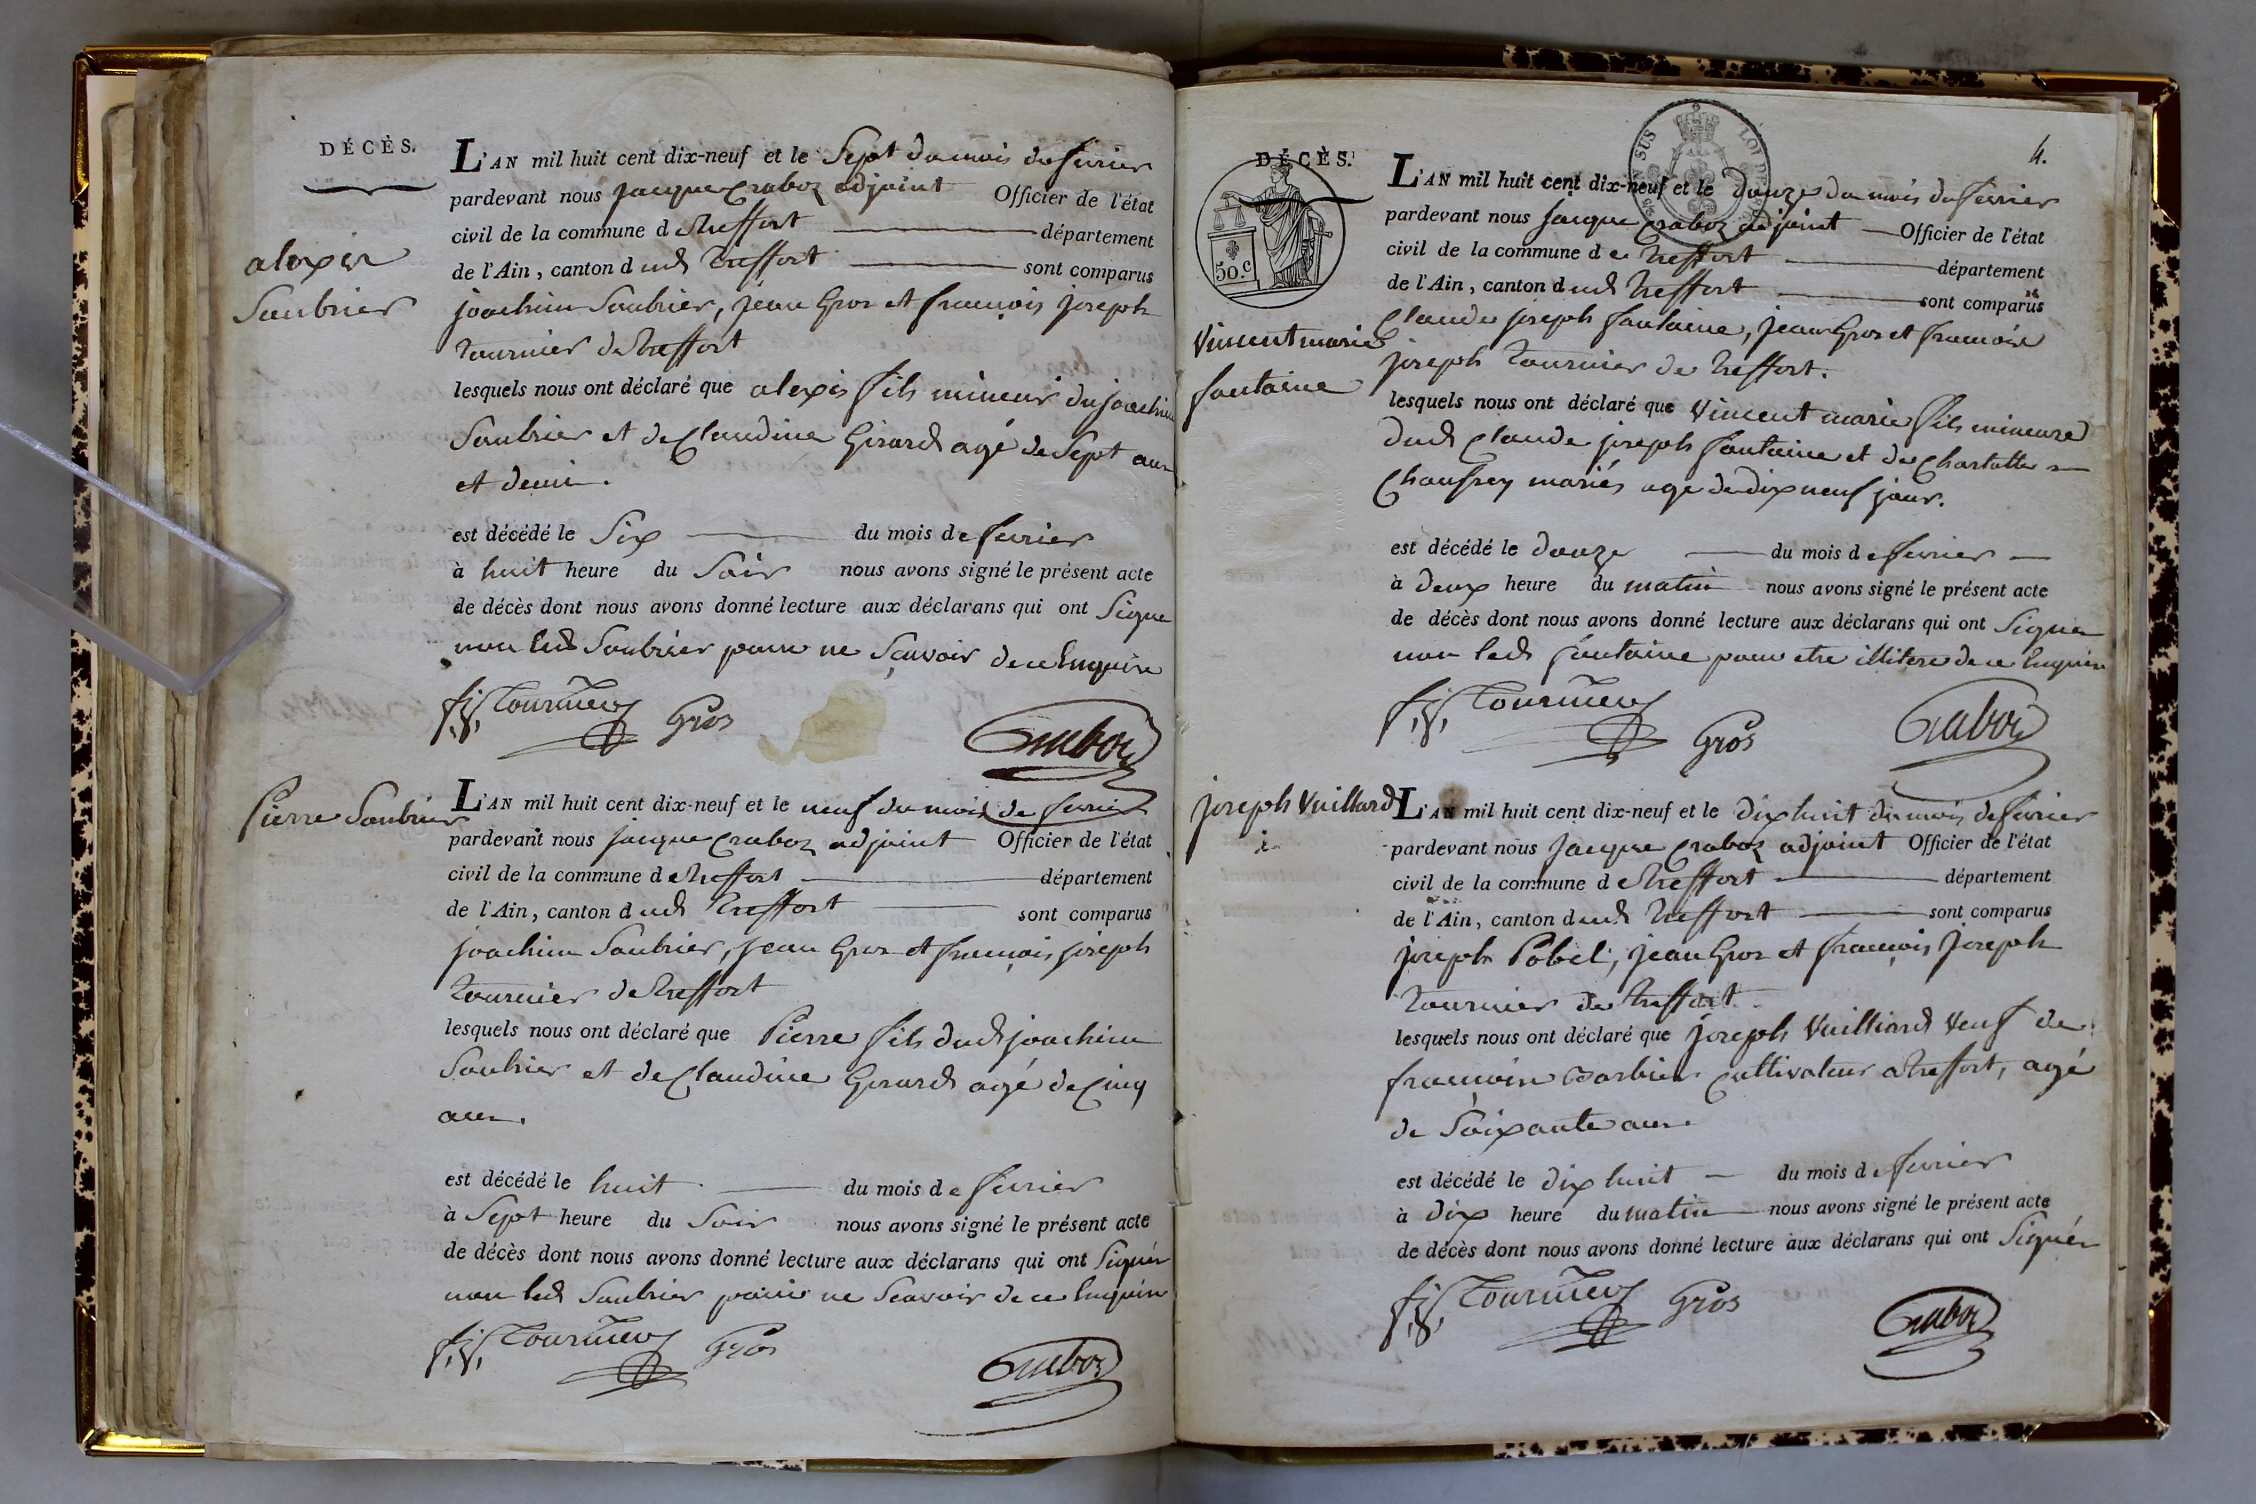 DÉCÈS.
alexis
Saubrier
L'AN mil huit cent dix-neuf et le Sept du mois de fevrier
pardevant nous jacque Craboz adjoint Officier de l'état
civil de la commune de treffort département
de l'Ain, canton dud treffort sont comparus
joachim Saubrier, jean Gros et françois joseph
tournier de treffort
lesquels nous ont déclaré que alexis fils mineur du joachim
Saubrier et de Claudine Girard agé de Sept ans
et demi.
est décédé le Six du mois de fevrier
à huit heure du Soir nous avons signé le présent acte
de décès dont nous avons donné lecture aux déclarans qui ont Signé
non led Saubrier pour ne Sçavoir de ce Enquis
f. j. Tournier Gros Craboz
Pierre Saubrier
L'AN mil huit cent dix-neuf et le neuf du mois de fevrier
pardevant nous jacque Craboz adjoint Officier de l'état
civil de la commune de treffort département
de l'Ain, canton dud treffort sont comparus
joachim Saubrier, jean Gros et françois joseph
tournier de treffort
lesquels nous ont déclaré que Pierre fils dud joachim
Saubrier et de Claudine Girard agé de Cinq
ans.
est décédé le huit du mois de fevrier
à Sept heure du Soir nous avons signé le présent acte
de décès dont nous avons donné lecture aux déclarans qui ont Signér
non led Saubrier pour ne Scavoir de ce Enquis
f. j. Tournier Gros Craboz
4.
DÉCÈS.
50.c
SUS LOI DE
Vincent marie
fontaine
L'AN mil huit cent dix-neuf et le douze du mois de fevrier
pardevant nous jacque Craboz adjoint Officier de l'état
civil de la commune de treffort département
de l'Ain, canton dud treffort sont comparus
Claude joseph fontaine, jean Gros et françois
joseph tournier de treffort.
lesquels nous ont déclaré que Vincent marie fils mineure
dud Claude joseph fontaine et de Charlotte
Chaufrey mariés agé de dix neuf jour.
est décédé le douze du mois de fevrier
à deux heure du matin nous avons signé le présent acte
de décès dont nous avons donné lecture aux déclarans qui ont Signer
non led fontaine pour etre illitere de ce Enquis
f. j. Tournier Gros Craboz
joseph Vuillard
L'AN mil huit cent dix-neuf et le dix huit du mois de fevrier
pardevant nous jacque Craboz adjoint Officier de l'état
civil de la commune de treffort département
de l'Ain, canton dud treffort sont comparus
joseph Pobel, jean Gros et françois joseph
tournier de treffort
lesquels nous ont déclaré que joseph Vuilliard Veuf de
françoise Barbier Cultivateur a treffort, agé
de Soixante ans.
est décédé le dix huit du mois de fevrier
à dix heure du matin nous avons signé le présent acte
de décès dont nous avons donné lecture aux déclarans qui ont Signér
f. j. Tournier Gros Craboz